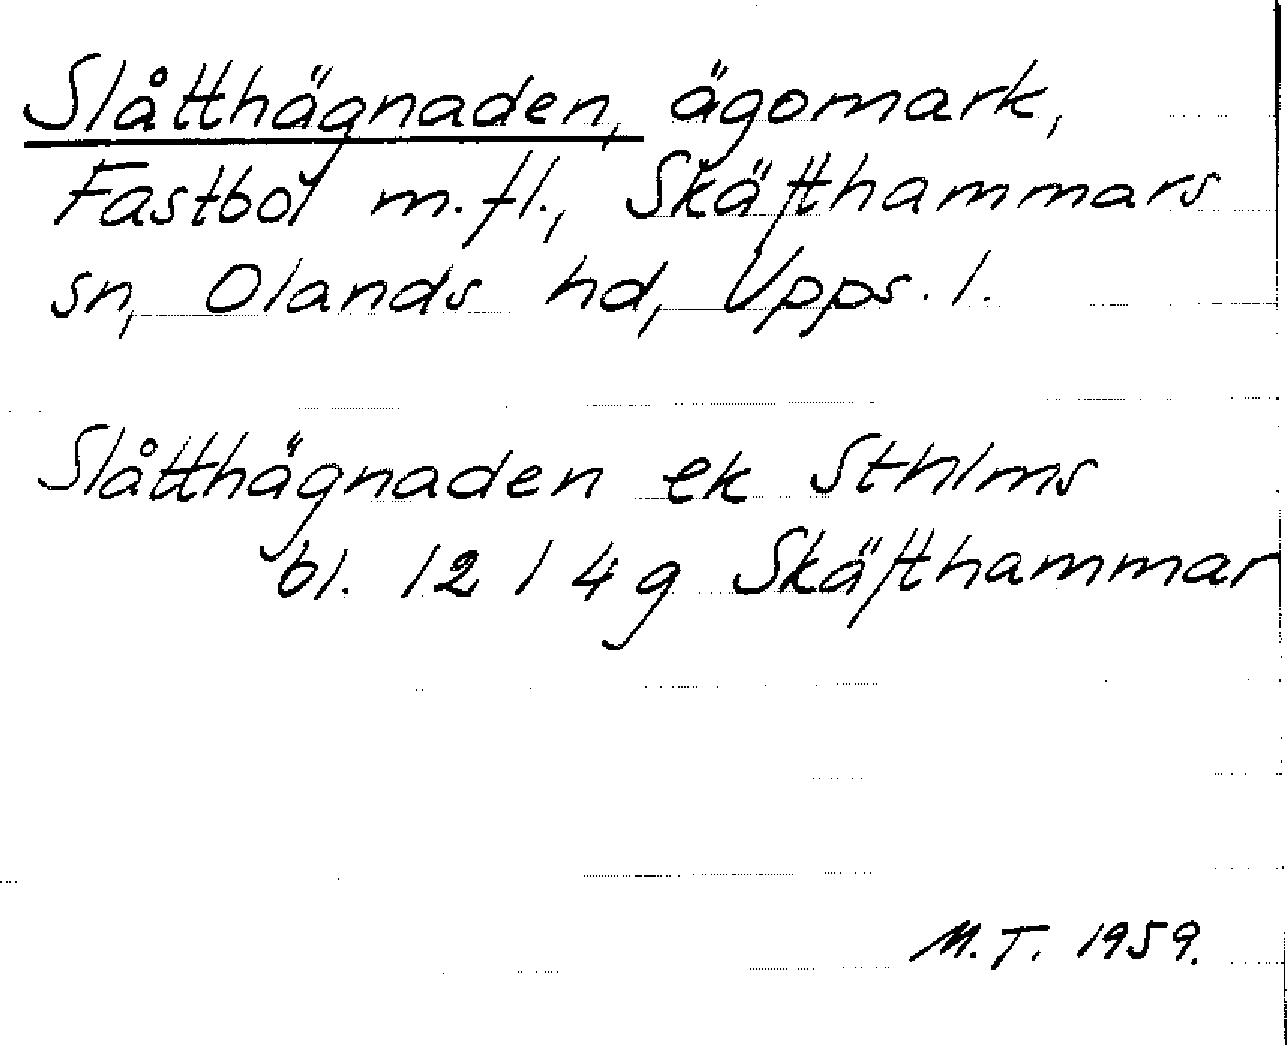 Slåtthägnaden, ägomark,
Fastbol m.fl., Skäfthammars
sn, Olands hd, Upps. l.
Slåtthägnaden ek Sthlms
bl. 12 I 4 g Skäfthammar
M.T. 1959.